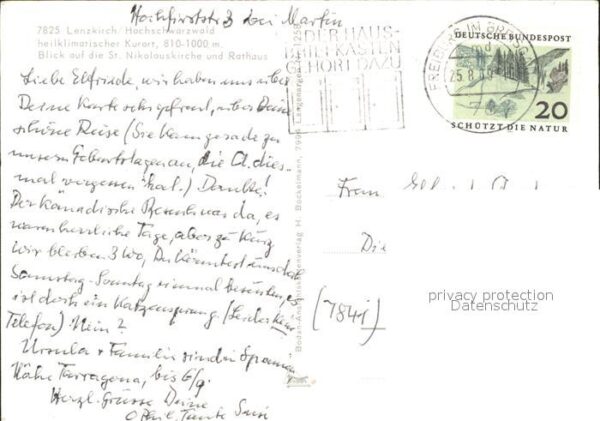 Hochfirststr 3 bei Martin
7825 Lenzkirch / Hochschwarzwald
heilklimatischer Kurort, 810-1000 m.
Blick auf die St. Nikolauskirche und Rathaus
Liebe Elfriede, wir haben uns über
Deine Karte sehr gefreut, über Deine
schöne Reise (Sie kam gerade zu
unseren Geburtstagen an, die A. dies-
mal vergessen hat.) Danke!
Der Besuch war da, es
waren herrliche Tage, aber zu kurz
Wir bleiben 3 Wo, Du könntest uns
Samstag-Sonntag einmal besuchen, es
ist doch ein Katzensprung (Leider kein
Telefon) Nein?
Ursula + Familie sind in Spanien
Nähe Tarragona, bis 6/9.
Herzl. Grüsse Deine
Tante Susi
IN DER HAUS-
BRIEFKASTEN
GEHÖRT DAZU
FREIBURG IM BREISGAU
25.8.69
DEUTSCHE BUNDESPOST
20
SCHÜTZT DIE NATUR
Frau
Die
(7841)
Bodan-Ansichtskartenverlag H. Bockelmann, 799 Langenargen
privacy protection
Datenschutz